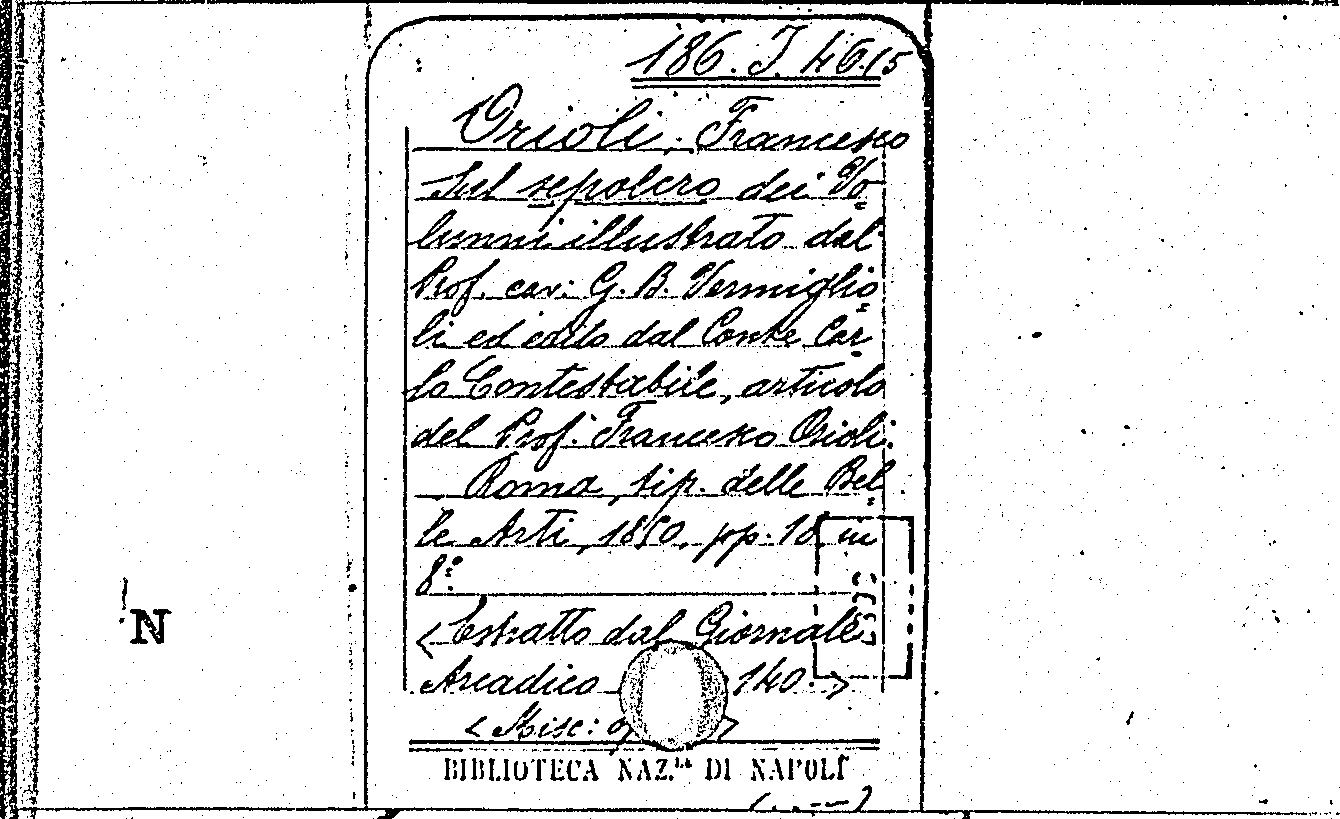 186. J. 46.15
Orioli, Francesco
Sul sepolcro dei Vo=
lunni illustrato dal
Prof. cav: G. B. Vermiglio=
li ed edito dal Conte Car=
lo Contestabile, articolo
del Prof. Francesco Orioli.
Roma, tip. delle Bel=
le Arti, 1850, pp. 18, in
8º
<Estratto dal Giornale
Arcadico 140.>
<Misc: >
BIBLIOTECA NAZ.LE DI NAPOLI
N